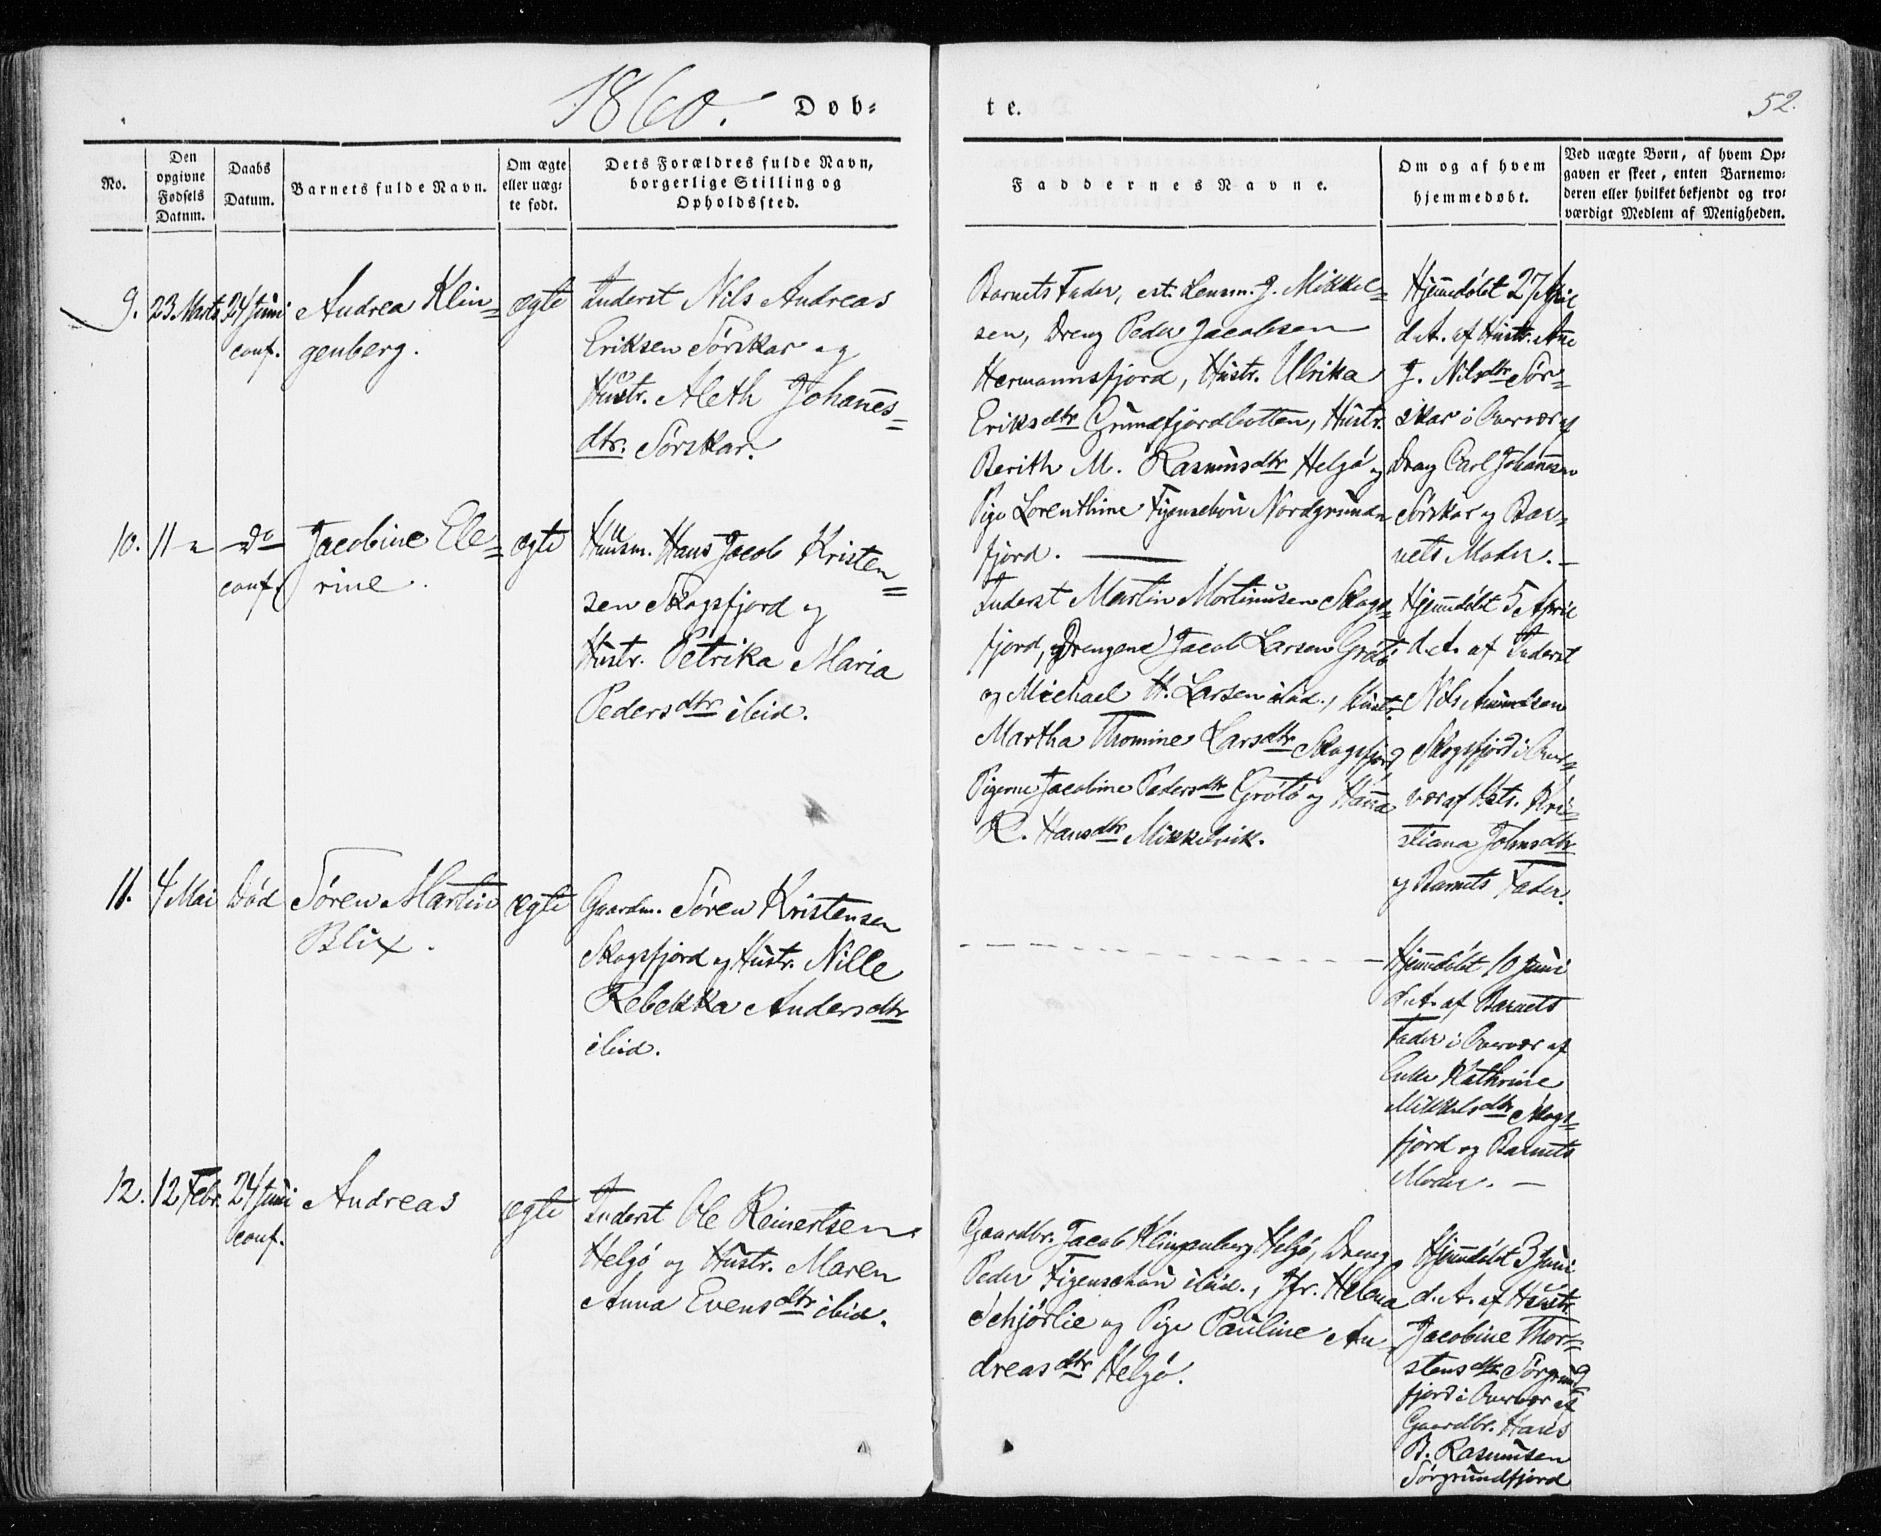 1860. Døb-
te.
52.
No.
Den opgivne Fødsels Datum.
Daabs Datum.
Barnets fulde Navn.
Om ægte eller uæg- te født.
Dets Forældres fulde Navn, borgerlige Stilling og Opholdssted.
Faddernes Navne.
Om og af hvem hjemmedøbt.
Ved uægte Børn, af hvem Op- gaven er skeet, enten Barnemo- deren eller hvilket bekjendt og tro- værdigt Medlem af Menigheden.
9. 23 Marts 24 Juni conf.
Andrea Klin-
genberg.
ægte
Inderst Nils Andreas
Eriksen Sørskar og
Hustr. Aleth Johannes-
dtr. Sørskar.
Barnets Fader, est. Lensm. J. Mikkel-
sen, Dreng Peder Jacobsen
Hermannsfjord, Hustr. Ulrika
Eriksdtr Grundfjordbotten, Hustr.
Berith M. Rasmusdtr Helgø og
Pige Lorenthine Figenschou Nordgrund-
fjord.
Hjemmdøbt 27 April
d.A. af Hustr. Ane
J. Nilsdtr Sør-
skar i Overvær af
Dreng Carl Johannesen
Sørskar og Bar-
nets Moder.
10. 11 " Do conf.
Jacobine Ele-
rine.
ægte
Huusm. Hans Jacob Kristen-
sen Skogsfjord og
Hustr. Petrika Maria
Pedersdtr ibid.
Inderst Martin Mortinusen Skogs-
fjord, Drengene Jacob Larsen Grøtø
og Michael H. Larsen ibid., Hustr.
Martha Thomine Larsdtr Skogsfjord,
Pigerne Jacobine Pedersdtr Grøtø og Hanna
R. Hansdtr Mikkelvik.
Hjemmdøbt 5 April
d.A. af Inderst
Nils Amundsen
Skogsfjord i Over-
vær af Hstr. Kri-
stiana Johnsdtr
og Barnets Fader.
11. 4 Mai Død
Søren Martin
Blix.
ægte
Gaardm. Søren Kristensen
Skogsfjord og Hustr. Nille
Rebekka Andersdtr
ibid.
Hjemmdøbt 10 Juni
d.A. af Barnets
Fader i Overvær af
Enke Kathrine
Mikkelsdtr Skogs-
fjord og Barnets
Moder.
12. 12 Febr. 24 Juni conf.
Andreas
ægte
Inderst Ole Reinertsen
Helgø og Hustr. Maren
Anna Evensdtr ibid.
Gaardbr. Jacob Klingenberg Helgø, Dreng
Peder Figenschou ibid., Jfr. Helena
Schjørlie og Pige Pauline An-
dreasdtr Helgø.
Hjemmdøbt 3 Juni
d.A. af Hustr.
Jacobine Thor-
stensdtr Sørgrund-
fjord i Overvær af
Gaardbr. Hans
B. Rasmusen
Sørgrundfjord